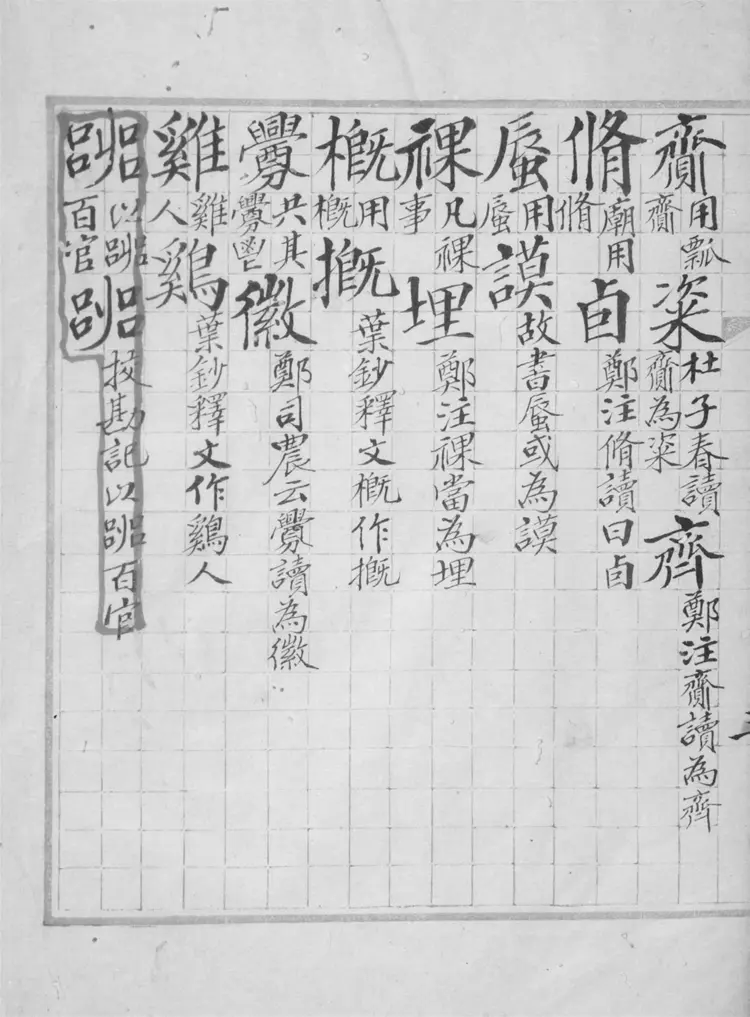 齎用瓢齎粢杜子春讀齎為粢齊鄭注齎讀為齊
脩廟用脩卣鄭注脩讀曰卣
蜃用蜃謨故書蜃或為謨
祼凡祼事埋鄭注祼當為埋
概用概摡葉鈔釋文概作摡
釁共其釁鬯徽鄭司農云釁讀為徽
雞雞人鷄葉鈔釋文作鷄人
嘂以嘂百官嘂挍勘記以嘂百官